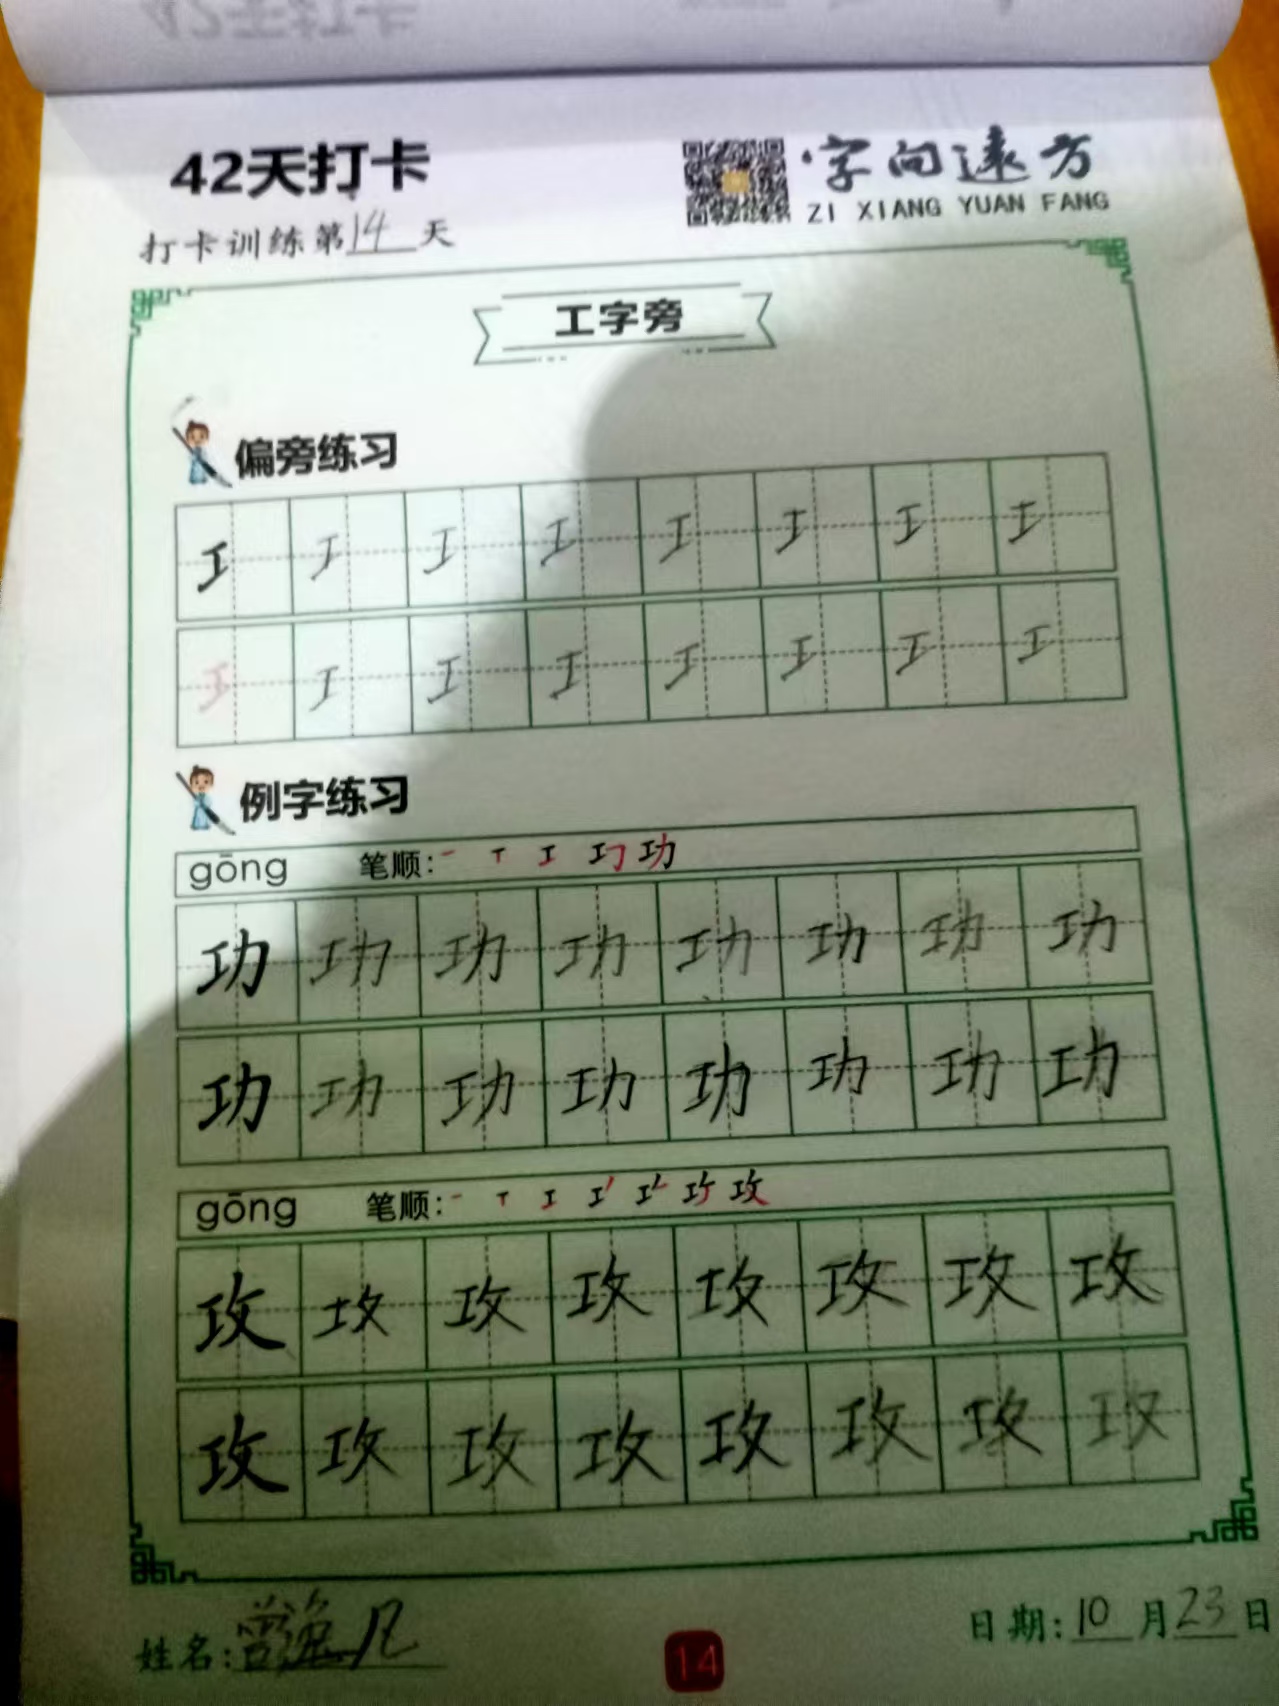 42天打卡
字向远方
ZI XIANG YUAN FANG
打卡训练第14天
工字旁
偏旁练习
工 工 工 工 工 工 工 工
工 工 工 工 工 工 工 工
例字练习
gōng 笔顺: 一 丅 工 功
功 功 功 功 功 功 功 功
功 功 功 功 功 功 功 功
gōng 笔顺: 一 丅 工 攻
攻 攻 攻 攻 攻 攻 攻 攻
攻 攻 攻 攻 攻 攻 攻 攻
姓名:曾逸凡
日期:10月23日
14